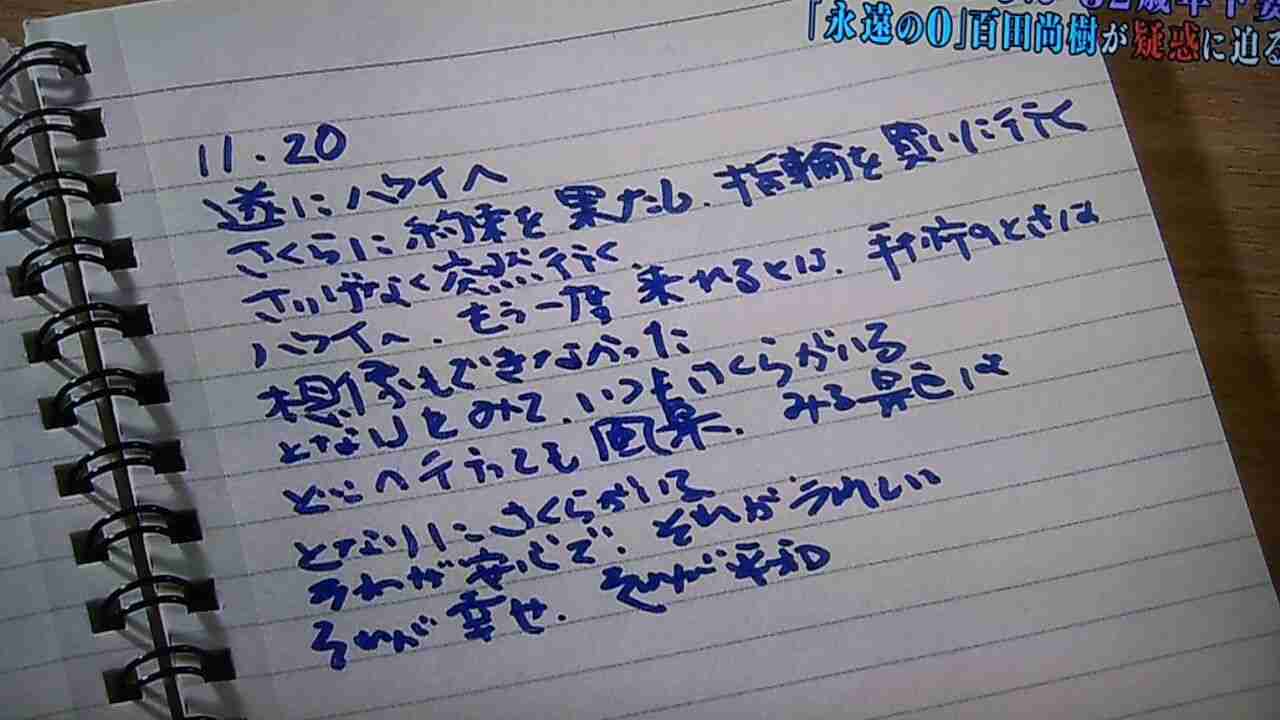 「永遠の0」百田尚樹が疑惑に迫る
11.20
遂にハワイへ
さくらに約束を果たし、指輪を買いに行く
さりげなく突然行く
ハワイへ、もう一度来れるとは、手術のときは
想像もできなかった
となりをみて、いつもさくらがいる
どこへ行っても風景、みる景色は
となりにさくらがいる
それが安心で、それがうれしい
それが幸せ、それが平和